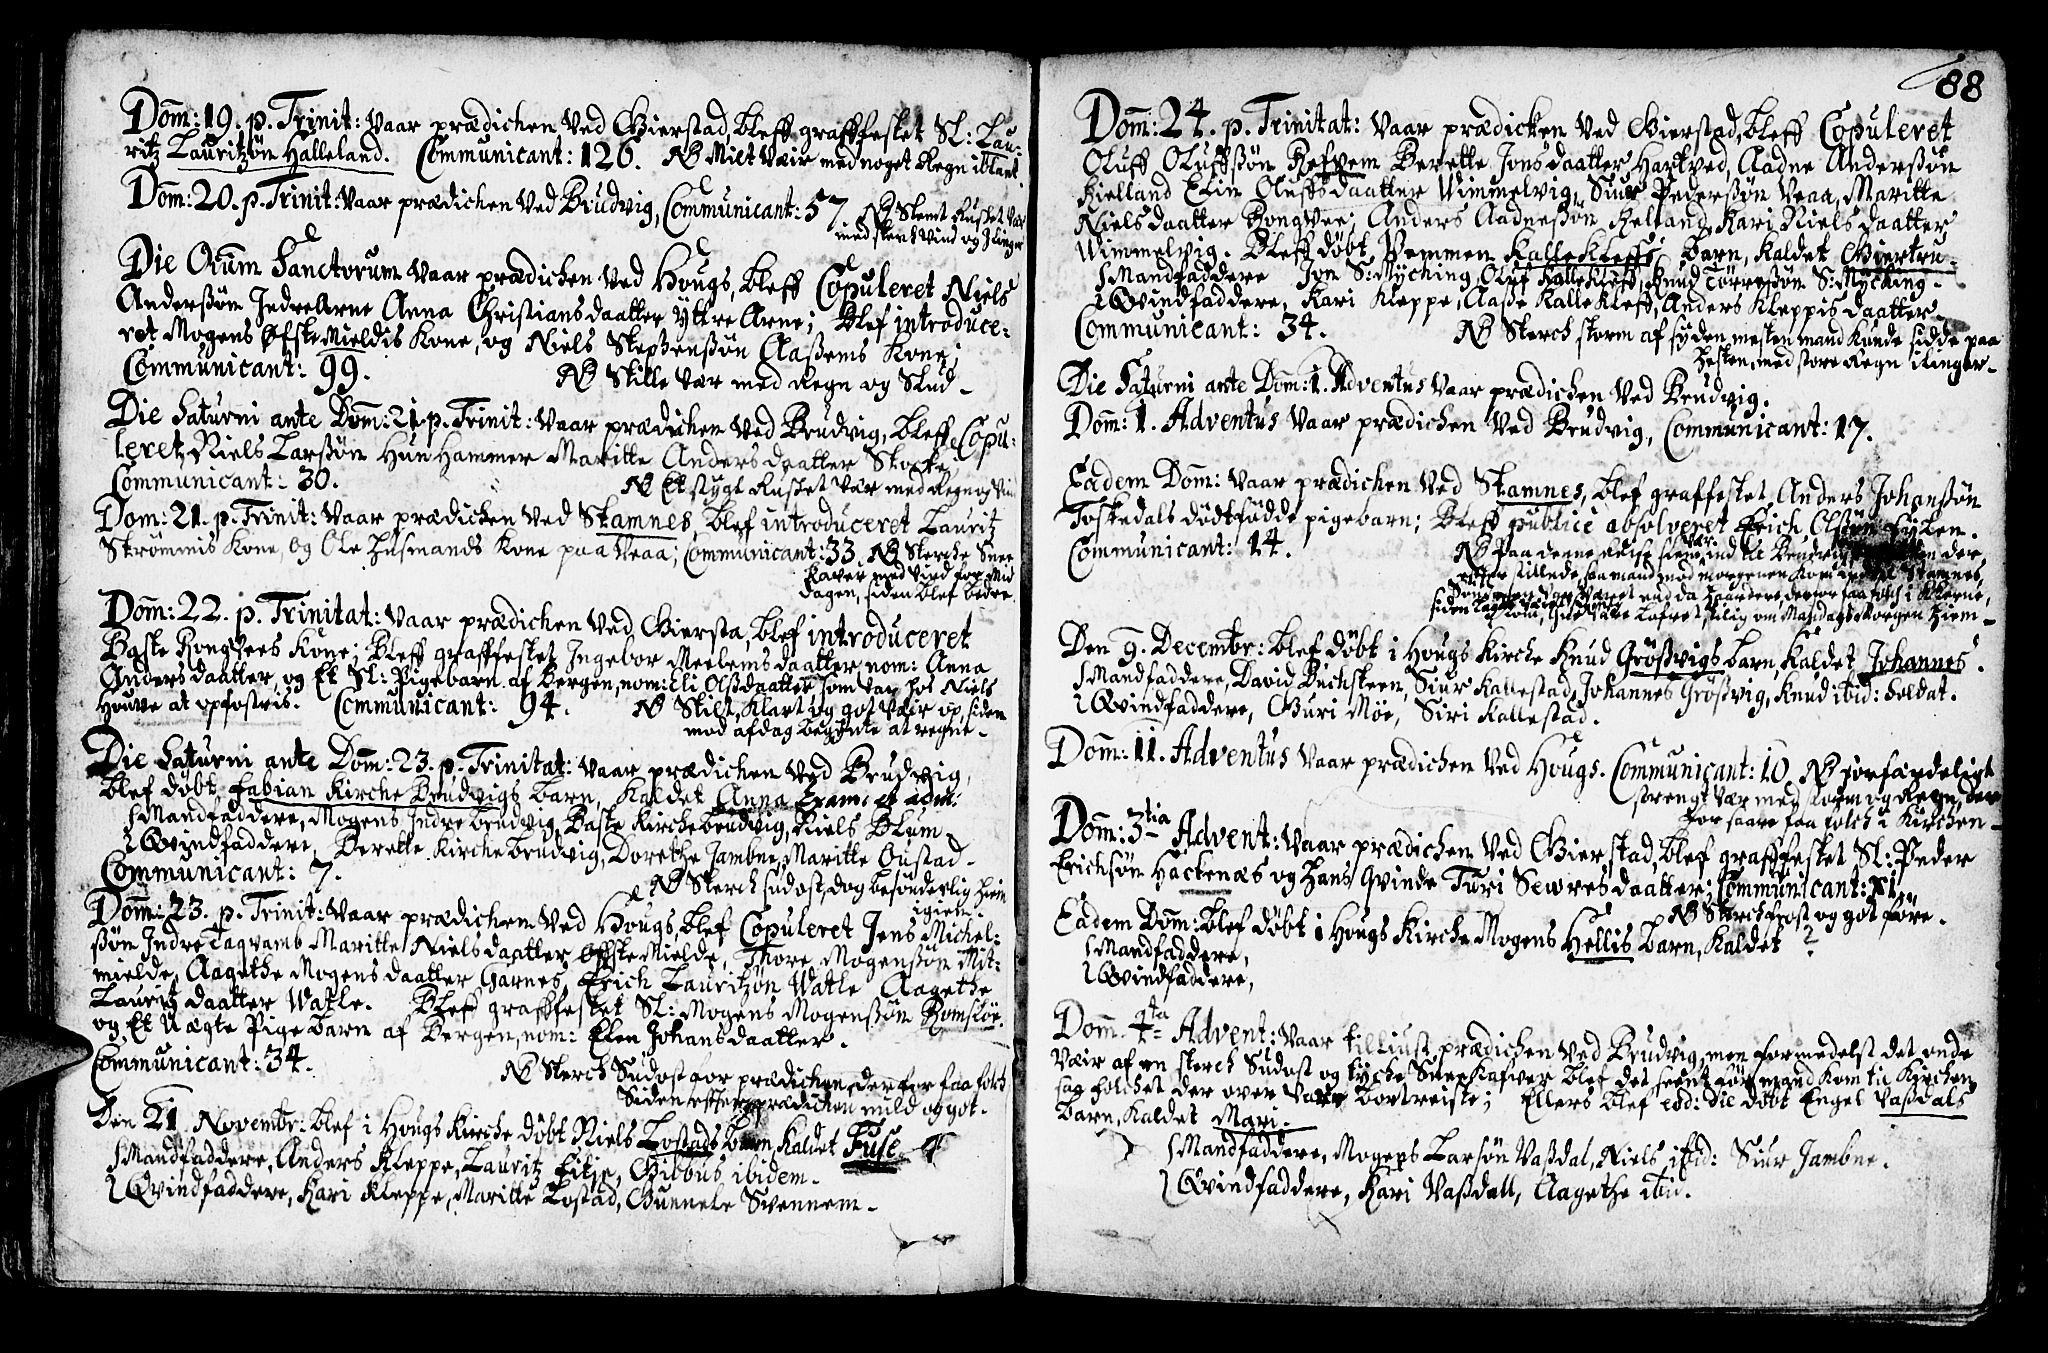 Dom: 19. p. Trinit: Vaar prædichen Ved Gierstad, bleff graffestet Sl: Lau-
ritz Lauritzøn Halleland. Communicant: 126. NB Milt Væir med noget Regn iblant.
Dom: 20. p. Trinit: Vaar prædichen Ved Brudvig, Communicant: 57. NB Slemt Rusket Vær
med sterch Vind og Ilinger
Die Omnium Sanctorum Vaar prædichen Ved Hougs, bleff Copuleret Niels
Anderssøn Indre Arne Anna Christiansdaatter Yttre Arne; Blef introduce-
ret Mogens Øfste Mieldis Kone, og Niels Stephenssøn Aasems Kone;
Communicant: 99. NB Stille Vær med Regn og Slud-
Die Saturni ante Dom: 21. p. Trinit: Vaar prædichen Ved Brudvig, bleff Copu-
leret Niels Larssøn Hun Hammer Maritte Andersdaatter Stocke,
Communicant: 30. NB Et stygt Rusket Vær med Regn og Vind
Dom: 21. p. Trinit: Vaar prædichen Ved Stamnes, blef introduceret Lauritz
Strømmis Kone, og Ole Husmands Kone paa Veaa; Communicant: 33. NB Sterche Snee
Kaver med Vind for Mid
dagen, siden blef bedre.
Dom: 22. p. Trinitat: Vaar prædichen Ved Giersta, blef introduceret
Baste Rongvees Kone; Bleff graffestet Ingebor Meelemsdaatter nom: Anna
Andersdaatter, og Et Sl: Pigebarn af Bergen, nom: Eli Olsdaatter, som var hos Niels
Houve at opfostris. Communicant: 94. NB Stilt, Klart og got Vær op, siden
mod afdag begynte at regne-
Die Saturni ante Dom: 23. p. Trinitat: Vaar prædichen Ved Brudvig,
blef døbt Fabian Kirche Brudvigs barn, Kaldet Anna
Mandfaddere, Mogens Indre Brudvig, Baste Kirche Brudvig, Niels Blum-
Qvindfaddere, Berette Kirche Brudvig, Dorethe Jambne, Maritte Oustad-
Communicant: 7. NB Sterch Sudost, dog besønderlig hiem
igien.
Dom: 23. p. Trinit: Vaar prædichen Ved Hougs, blef Copuleret Jens Michel-
søn Indre Tagvamb Maritte Nielsdaatter Øfste Mielde, Thore Mogenssøn Mit-
mielde, Aagethe Mogensdaatter Garnes, Erich Lauritzøn Watle Aagethe
Lauritz daatter Watle. Bleff graffestet Sl: Mogens Mogenssøn Romslöe.
og Et Uægte Pige barn af Bergen, nom: Elen Johansdaatter.
Communicant: 34. NB Sterch Sudost for prædichen, derfor faa folch
Siden efter prædichen mild og got.
Den 21. Novembr: blef i Hougs Kirche døbt Niels Lostads barn, Kaldet
Mandfaddere, Anders Kleppe, Lauritz Fitje, Gibbus ibidem-
Qvindfaddere, Kari Kleppe, Maritte Lostad, Gunnele Svennem-
88
Dom: 24. p. Trinitat: Vaar prædicken Ved Gierstad, bleff Copuleret
Oluff Oluffssøn Refhem Berette Jonsdaatter Hartved, Aadne Anderssøn
Hielland Elin Oluffsdaatter Wimmelvig, Siur Pederssøn Veaa, Maritte
Nielsdaatter Rongvee; Anders Aadnessøn Helland, Kari Nielsdaatter
Wimmelvig. Bleff døbt Vemmen Kallekleffs barn, Kaldet Giertru-
Mandfaddere Jon S: Mÿcking Oluf Kallekleff, Knud Tørressøn S: Mÿcking-
Qvindfaddere, Kari Kleppe, Aase Kallekleff, Anders Kleppis daatter.
Communicant: 34. NB Sterch storm af syden, mesten mand Kunde sidde paa
hesten, med store Regn ilinger.
Die Saturni ante Dom: 1. Adventus Vaar prædichen Ved Brudvig.
Dom: 1. Adventus Vaar prædichen Ved Brudvig, Communicant: 17.
Eadem Dom: Vaar prædichen Ved Stamnes, blef graffestet Anders Johanssøn
Toskedals dødtfødde pigebarn; Bleff publice absolveret Erich Olssøn
Communicant: 14. NB Paa denne Reise
Den 9. Decembr: blef døbt i Hougs Kirche Knud Grössvigs barn, Kaldet Johannes.
Mandfaddere, David Buchsteen, Siur Kallestad, Johannes Grössvig, Knud ibid: Soldat.
Qvindfaddere, Guri Möe, Siri Kallestad.
Dom: 11. Adventus Vaar prædichen Ved Hougs. Communicant: 10. NB forfærdeligt
strengt Vær med storm og Regn, der
for saare faa folch i Kirchen-
Dom: 3tia Advent: Vaar prædichen Ved Gierstad, blef graffestet Sl: Peder
Erichsøn Hackenæs og Hans Qvinde Turi Sewresdaatter; Communicant: XI.
NB Sterch frost og got føre.
Eadem Dom: blef døbt i Hougs Kirche Mogens Hellis barn, Kaldet ?
Mandfaddere,
Qvindfaddere,
Dom. 4ta Advent: Vaar tilliust prædichen Ved Brudvig, men formedelst det onde
Væir af en sterch Sudost og tyche Snee Kafver blef det seent før mand Kom til Kirchen,
saa folchet der over Vare bortreiste; Ellers blef eod: die døbt Engel Vassdals
barn, Kaldet Mari-
Mandfaddere, Mogens Larsøn Vassdal, Niels ibid: Siur Jambne.
Qvindfaddere, Kari Vassdall, Aagethe ibid.